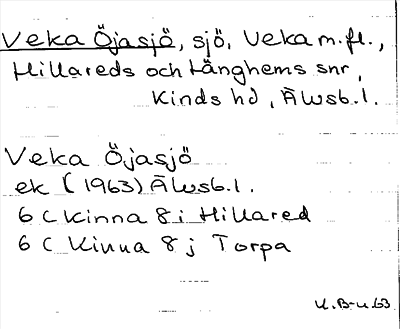 Veka Öjasjö, sjö, Veka m.fl.,
Hillareds och Länghems snr,
Kinds hd, Älvsb.l.
Veka Öjasjö
ek (1963) Älvsb.l.
6 C Kinna 8 i Hillared
6 C Kinna 8 j Torpa
U.B-u.63